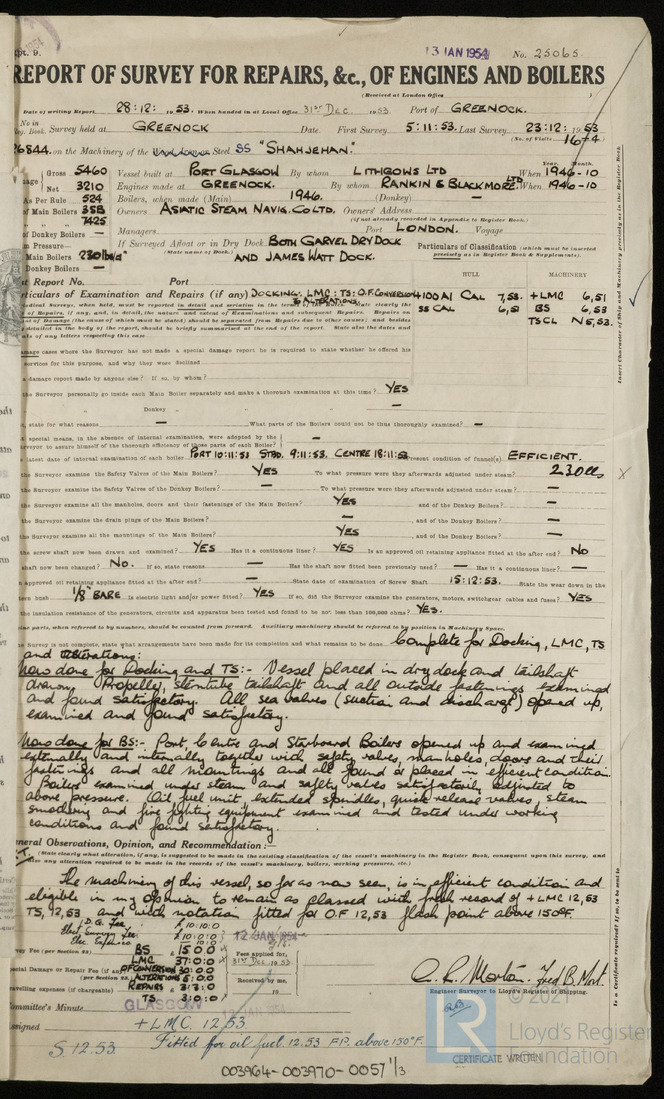 pt. 9.
13 JAN 1954
No. 25065.
REPORT OF SURVEY FOR REPAIRS, &c., OF ENGINES AND BOILERS
(Received at London Office
Date of writing Report 28:12: 1953. When handed in at Local Office 31st Dec. 1953 Port of GREENOCK.
No in
Reg. Book. Survey held at GREENOCK Date. First Survey 5:11:53. Last Survey 23:12:1953
(No. of Visits 16+4)
26844. on the Machinery of the Steel SS "SHAHJEHAN."
Gross 5460 Vessel built at PORT GLASGOW By whom LITHGOWS LTD Year. Month. When 1946-10
Net 3210 Engines made at GREENOCK. By whom RANKIN & BLACKMORE LTD When 1946-10
As Per Rule 524 Boilers, when made (Main) 1946. (Donkey) —
of Main Boilers 3SB Owners ASIATIC STEAM NAVIG. CO LTD. Owners' Address
7425 (if not already recorded in Appendix to Register Book.)
of Donkey Boilers — Managers Port LONDON. Voyage
m Pressure— If Surveyed Afloat or in Dry Dock BOTH GARVEL DRY DOCK
Main Boilers 230 lbs/□" (State name of Dock.) AND JAMES WATT DOCK.
Donkey Boilers —
Particulars of Classification (which must be inserted
precisely as in Register Book & Supplements).
HULL MACHINERY
st Report No. Port
rticulars of Examination and Repairs (if any) DOCKING. LMC: TS: O.F. CONVERSION
& ALTERATIONS
+100A1 CAL 7,53. +LMC 6,51
SS CAL 6,51 BS 6,53
TSCL N 5,53.
Insert Character of Ship and Machinery precisely as in the Register Book
amage cases where the Surveyor has not made a special damage report he is required to state whether he offered his
services for this purpose, and why they were declined
a damage report made by anyone else? If so, by whom?
the Surveyor personally go inside each Main Boiler separately and make a thorough examination at this time? YES
" Donkey " —
, state for what reasons — What parts of the Boilers could not be thus thoroughly examined? —
special means, in the absence of internal examination, were adopted by the
urveyor to assure himself of the thorough efficiency of those parts of each Boiler? —
latest date of internal examination of each boiler PORT 10:11:53 STBD. 9:11:53. CENTRE 18:11:53 Present condition of funnel(s). EFFICIENT.
the Surveyor examine the Safety Valves of the Main Boilers? YES To what pressure were they afterwards adjusted under steam? 230 lbs
the Surveyor examine the Safety Valves of the Donkey Boilers? — To what pressure were they afterwards adjusted under steam? —
the Surveyor examine all the manholes, doors and their fastenings of the Main Boilers? YES and of the Donkey Boilers? —
the Surveyor examine the drain plugs of the Main Boilers? — and of the Donkey Boilers? —
the Surveyor examine all the mountings of the Main Boilers? YES and of the Donkey Boilers? —
the screw shaft now been drawn and examined? YES Has it a continuous liner? YES Is an approved oil retaining appliance fitted at the after end? NO
shaft now been changed? NO. If so, state reasons — Has the shaft now fitted been previously used? — Has it a continuous liner? —
approved oil retaining appliance fitted at the after end? — State date of examination of Screw Shaft 15:12:53. State the wear down in the
ern bush 1/8" BARE Is electric light and/or power fitted? YES If so, did the Surveyor examine the generators, motors, switchgear cables and fuses? YES
the insulation resistance of the generators, circuits and apparatus been tested and found to be not less than 100,000 ohms? YES.
ine parts, when referred to by numbers, should be counted from forward. Auxiliary machinery should be referred to by position in Machinery Space.
Survey is not complete, state what arrangements have been made for its completion and what remains to be done Complete for Docking, LMC, TS
and alterations:
Now done for Docking and TS:- Vessel placed in dry dock and tailshaft
drawn. Propeller, sterntube, tailshaft and all outside fastenings examined
and found satisfactory. All sea valves (suction and discharge) opened up,
examined and found satisfactory.
Now done for BS:- Port, Centre and Starboard Boilers opened up and examined
externally and internally together with safety valves, manholes, doors and their
fastenings and all mountings and all found or placed in efficient condition.
Boilers examined under steam and safety valves satisfactorily adjusted to
above pressure. Oil fuel unit extended spindles, quick release valves, steam
smothering and fire fighting equipment examined and tested under working
conditions and found satisfactory.
eneral Observations, Opinion, and Recommendation :—
(State clearly what alteration, if any, is suggested to be made in the existing classification of the vessel's machinery in the Register Book, consequent upon this survey, and
also any alteration required to be made in the records of the vessel's machinery, boilers, working pressures, etc.)
The machinery of this vessel, so far as now seen, is in efficient condition and
eligible in my opinion to remain as classed with fresh record of +LMC 12,53
TS, 12,53 and with notation fitted for O.F 12,53 flash point above 150°F.
D.G. Fee £10:10:0
Elect Survey Fee £10:10:0
BS 15:0:0
LMC 37:0:0
OF CONVERSION 30:0:0
ALTERATIONS 5:0:0
REPAIRS 3:3:0
TS 3:0:0
vey Fee (per Section 22)
ecial Damage or Repair Fee (if any)
(per Section 22)
ravelling expenses (if chargeable)
12 JAN 1954
Fees applied for,
31st Dec 1953
Received by me,
19
A. R. Morton. Fred B. Mort.
Engineer Surveyor to Lloyd's Register of Shipping.
ommittee's Minute GLASGOW
ssigned +LMC. 12,53
S. 12.53. Fitted for oil fuel. 12.53 F.P. above 150°F.
CERTIFICATE WRITTEN
Is a Certificate required? If so, to be sent to
© 2021
LR
Lloyd's Register
Foundation
003964-003970-0057 1/3